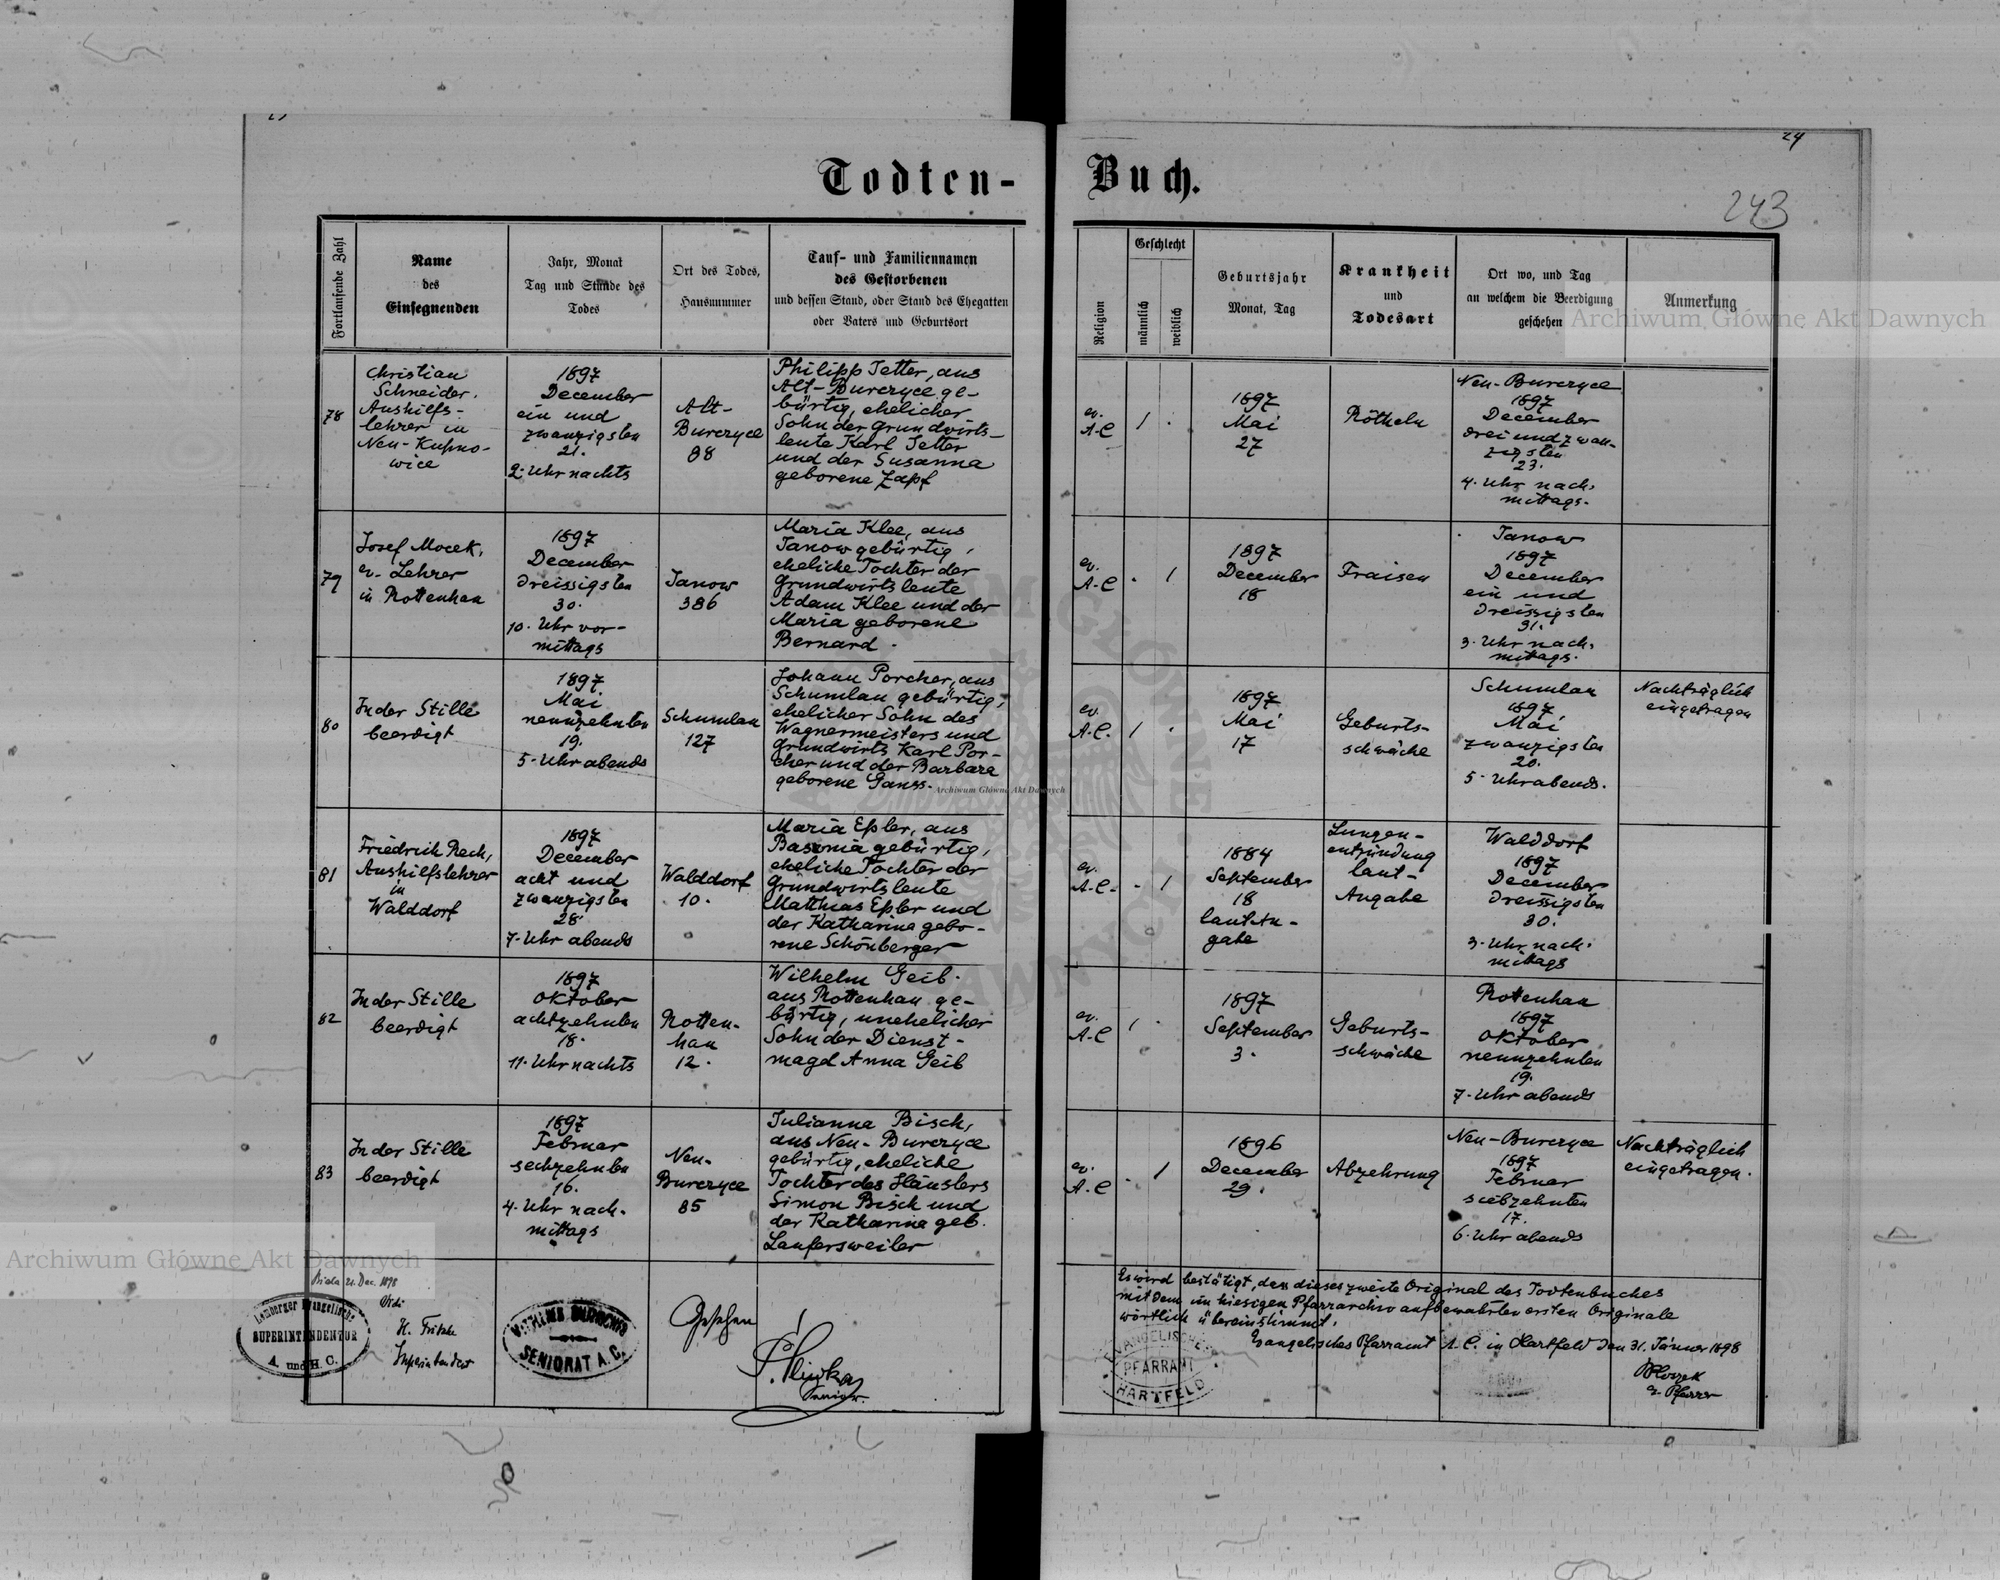 24
Todten-Buch.
243
Fortlaufende Zahl
Name
des
Einsegnenden
Jahr, Monat
Tag und Stunde des
Todes
Ort des Todes,
Hausnummer
Tauf- und Familiennamen
des Gestorbenen
und dessen Stand, oder Stand des Ehegatten
oder Vaters und Geburtsort
Religion
Geschlecht
männlich
weiblich
Geburtsjahr
Monat, Tag
Krankheit
und
Todesart
Ort wo, und Tag
an welchem die Beerdigung
geschehen
Anmerkung
78
Christian
Schneider,
Aushilfs-
lehrer in
Neu-Kupno-
wice
1897
December
ein und
zwanzigsten
21.
2. Uhr nachts
Alt-
Burczyce
88
Philipp Jetter, aus
Alt-Burczyce ge-
bürtig, ehelicher
Sohn der Grundwirts-
leute Karl Jetter
und der Susanna
geborene Zapf
ev.
A.C
1
.
1897
Mai
27
Rötheln
Neu-Burczyce
1897
December
drei und zwan-
zigsten
23.
4. Uhr nach-
mittags.
79
Josef Mocek,
ev. Lehrer
in Rottenhan
1897
December
dreissigsten
30.
10. Uhr vor-
mittags
Janow
386
Maria Klee, aus
Janow gebürtig,
eheliche Tochter der
Grundwirtsleute
Adam Klee und der
Maria geborene
Bernard.
ev.
A.C
.
1
1897
December
18
Fraisen
Janow
1897
December
ein und
dreissigsten
31.
3. Uhr nach-
mittags.
80
In der Stille
beerdigt
1897
Mai
neunzehnten
19.
5. Uhr abends
Schumlau
127
Johann Porcher, aus
Schumlau gebürtig,
ehelicher Sohn des
Wagnermeisters und
Grundwirts Karl Por-
cher und der Barbara
geborene Ganss.
ev.
A.C.
1
.
1897
Mai
17
Geburts-
schwäche
Schumlau
1897
Mai
zwanzigsten
20.
5. Uhr abends.
Nachträglich
eingetragen
81
Friedrich Rech,
Aushilfslehrer
in
Walddorf
1897
December
acht und
zwanzigsten
28.
7. Uhr abends
Walddorf
10.
Maria Epler, aus
Basonia gebürtig,
eheliche Tochter der
Grundwirtsleute
Matthias Epler und
der Katharina gebo-
rene Schönberger
ev.
A.C.
-
1
1884
September
18
laut An-
gabe
Lungen-
entzündung
laut-
Angabe
Walddorf
1897
December
dreissigsten
30.
3. Uhr nach-
mittags
82
In der Stille
beerdigt
1897
Oktober
achtzehnten
18.
11. Uhr nachts
Rotten-
han
12.
Wilhelm Geib.
aus Rottenhan ge-
bürtig, unehelicher
Sohn der Dienst-
magd Anna Geib
ev.
A.C
1
.
1897
September
3.
Geburts-
schwäche
Rottenhan
1897
Oktober
neunzehnten
19.
7. Uhr abends
83
In der Stille
beerdigt
1897
Februar
sechzehnten
16.
4. Uhr nach-
mittags
Neu-
Burczyce
85
Julianna Bisch,
aus Neu-Burczyce
gebürtig, eheliche
Tochter des Häuslers
Simon Bisch und
der Katharina geb.
Laufersweiler
ev.
A.C
.
1
1896
December
29.
Abzehrung
Neu-Burczyce
1897
Februar
siebzehnten
17.
6. Uhr abends
Nachträglich
eingetragen.
Biala 21. Dec. 1898
Vidi
H. Fritsche
Superintendent
Lemberger Evangelische
SUPERINTENDENTUR
A. und H. C.
SENIORAT A. C.
Gesehen
Senior.
Es wird bestätigt, dass dieses zweite Original des Todtenbuches
mit dem im hiesigen Pfarrarchiv aufbewahrten ersten Originale
wörtlich übereinstimmt.
Evangelisches Pfarramt A. C. in Hartfeld den 31. Jänner 1898
ev. Pfarrer
EVANGELISCHES
PFARRAMT
HARTFELD
Archiwum Główne Akt Dawnych
Archiwum Główne Akt Dawnych
Archiwum Główne Akt Dawnych